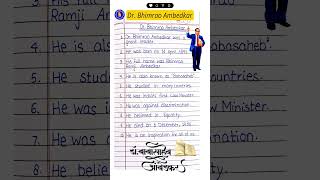 Dr. Bhimrao Ambedkar
Dr. Bhimrao Ambedkar
1. Dr. Bhimrao Ambedkar was a
great leader.
2. He was born on 14 April 1891.
3. His full name was Bhimrao
Ramji Ambedkar.
4. He is also known as "Babasaheb".
5. He studied in many countries.
6. He was India's first Law Minister.
7. He was against discrimination.
8. He believed in Equality.
9. He died on 6 December, 1956.
10. He is an inspiration for all of us.
डॉ. बाबासाहेब
आंबेडकर
Ramji Am
4. He is als
5. He stud
6. He was
7. He was
8. He belie
ountries.
Minister.